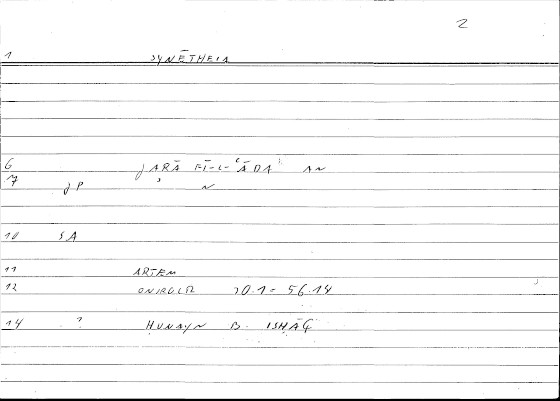 2
1 SYNĒTHEIA
6 ǰARĀ FĪ-L-ʿĀDAʾ AN
7 ǰP N
10 SA
11 ARTEM
12 ONIROCR 70.1 - 56.14
14 ? ḤUNAYN B. ISḤĀQ